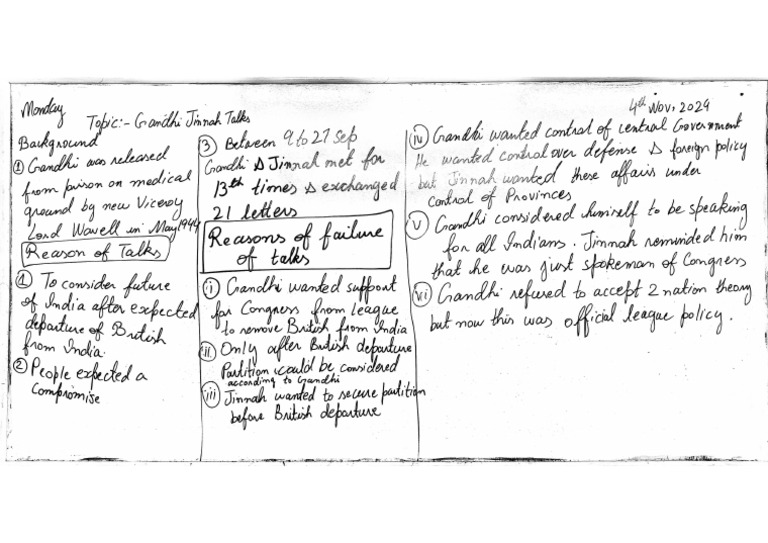 Monday
4th Nov, 2029
Topic:- Gandhi Jinnah Talks
Background
① Gandhi was released
from prison on medical
ground by new Viceroy
Lord Wavell in May 1944
Reason of Talks
① To consider future
of India after expected
departure of British
from India.
② People expected a
compromise
③ Between 9 to 27 Sep
Gandhi & Jinnah met for
13th times & exchanged
21 letters
Reasons of failure
of talks
(i) Gandhi wanted support
for Congress from League
to remove British from India
(ii) Only after British departure
Partition could be considered
according to Gandhi
(iii) Jinnah wanted to secure partition
before British departure
(iv) Gandhi wanted control of central Government
He wanted control over defense & foreign policy
but Jinnah wanted these affairs under
control of Provinces
(v) Gandhi considered himself to be speaking
for all Indians. Jinnah reminded him
that he was just spokeman of Congress
(vi) Gandhi refused to accept 2 nation theory
but now this was official league policy.